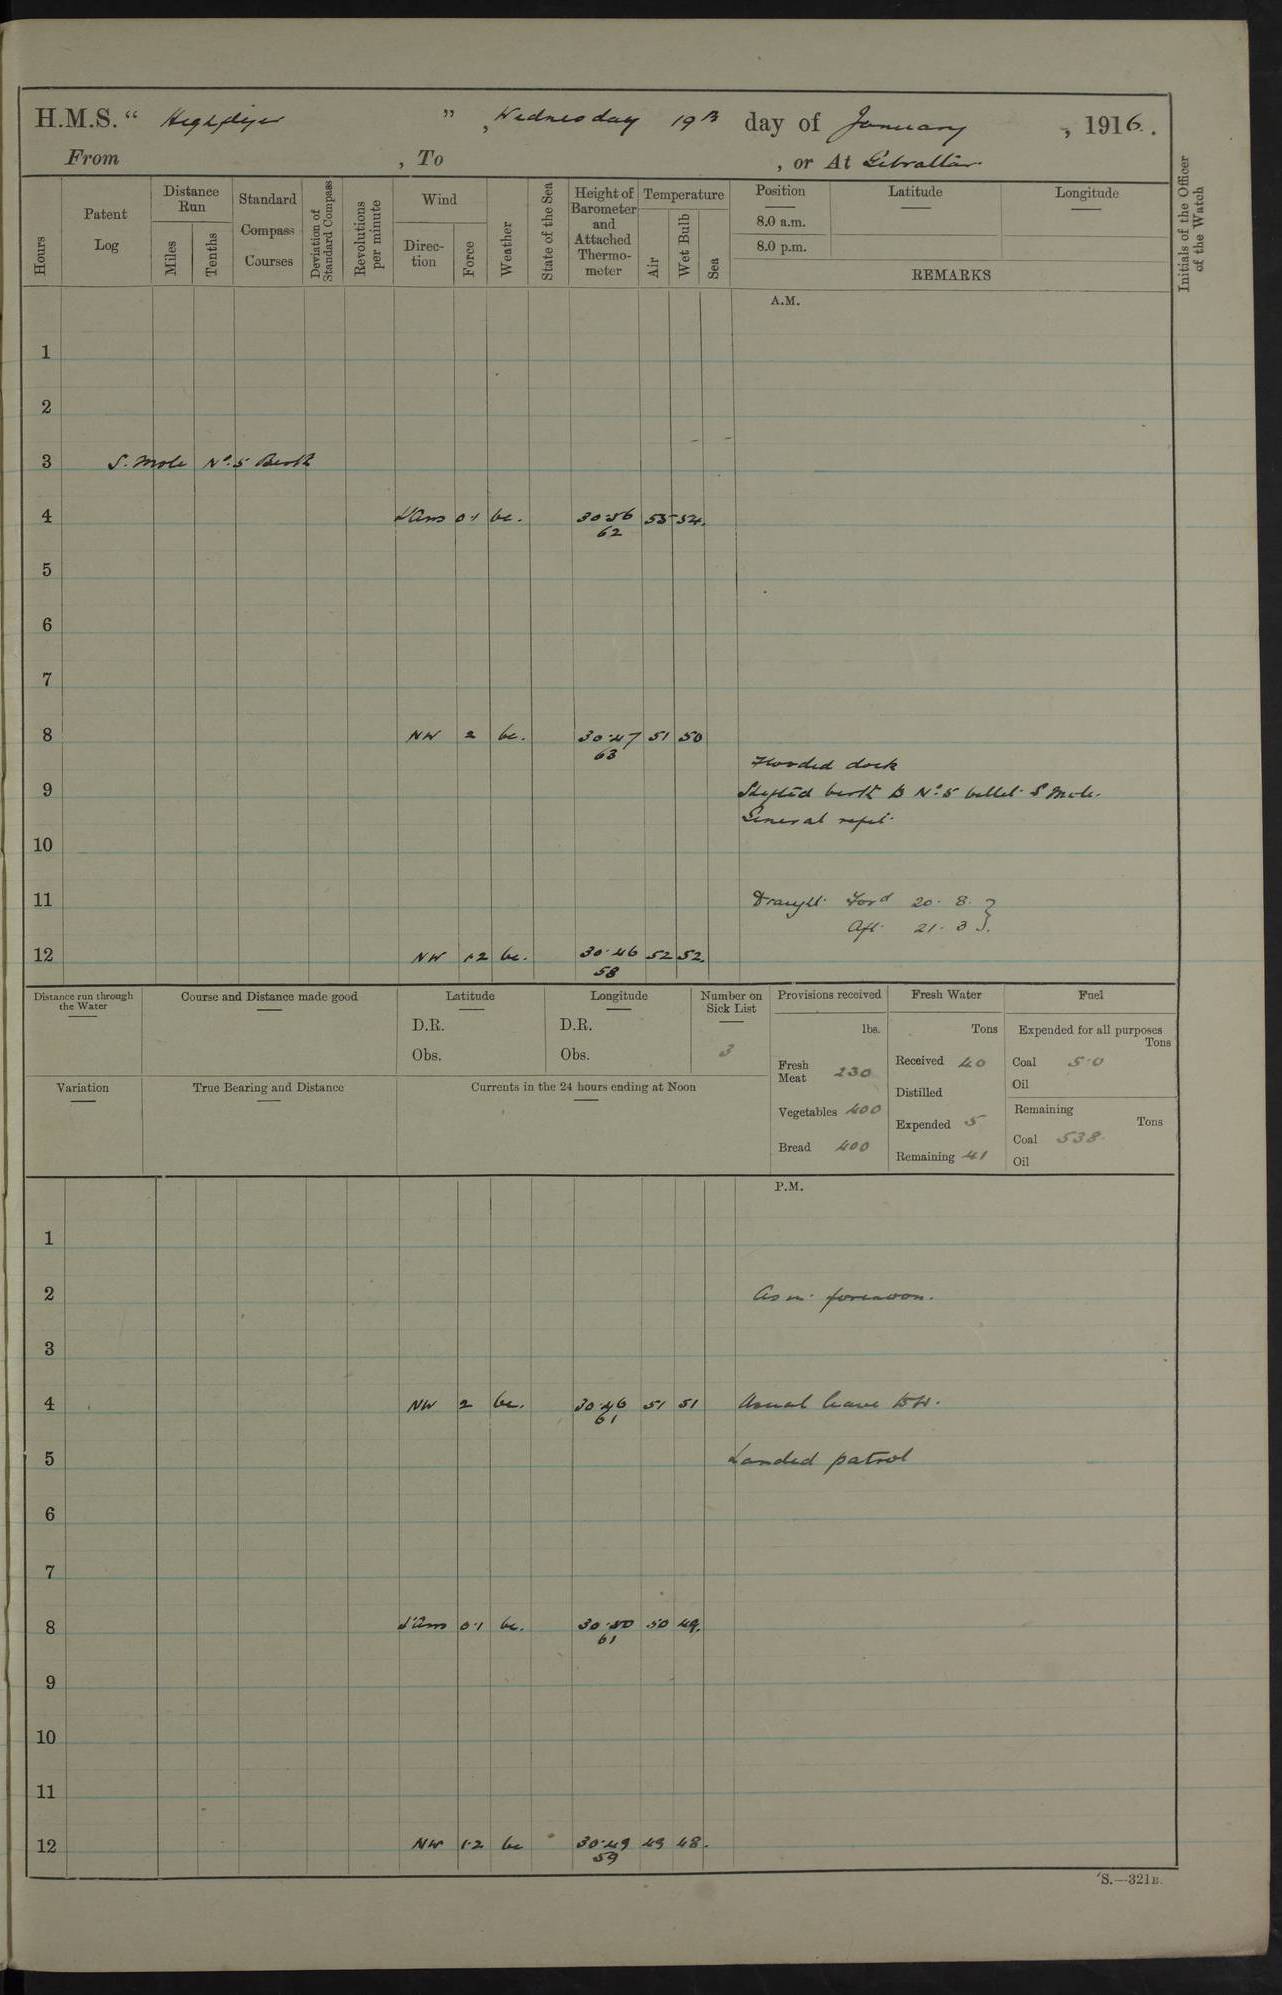 H.M.S. “ Highflyer ” , Wednesday 19th day of January , 1916.
From , To , or At Gibraltar.
Hours
Patent Log
Distance Run
Miles
Tenths
Standard Compass Courses
Deviation of Standard Compass
Revolutions per minute
Wind
Direction
Force
Weather
State of the Sea
Height of Barometer and Attached Thermometer
Temperature
Air
Wet Bulb
Sea
Position
8.0 a.m.
8.0 p.m.
Latitude
Longitude
REMARKS
Initials of the Officer of the Watch
A.M.
1
2
3 S. Mole No. 5 Berth
4 0·1 bc. 30·56 55 54.
62
5
6
7
8 NW 2 bc. 30·47 51 50
63
Flooded dock
9 Shifted berth to No. 5 billet S Mole.
General refit.
10
11 Draught Ford 20. 8.
Aft. 21. 3.
12 NW 1·2 bc. 30·46 52 52.
58
Distance run through the Water
Course and Distance made good
Latitude
D.R.
Obs.
Longitude
D.R.
Obs.
Number on Sick List
3
Provisions received
lbs.
Fresh Meat 230
Vegetables 400
Bread 400
Fresh Water
Tons
Received 40
Distilled
Expended 5
Remaining 41
Fuel
Expended for all purposes
Tons
Coal 5·0
Oil
Remaining
Tons
Coal 538.
Oil
Variation
True Bearing and Distance
Currents in the 24 hours ending at Noon
P.M.
1
2 As in forenoon.
3
4 NW 2 bc. 30·46 51 51 Usual leave
61
5 Landed patrol
6
7
8 0·1 bc. 30·50 50 49.
61
9
10
11
12 NW 1·2 bc 30·49 49 48.
59
S.—321B.